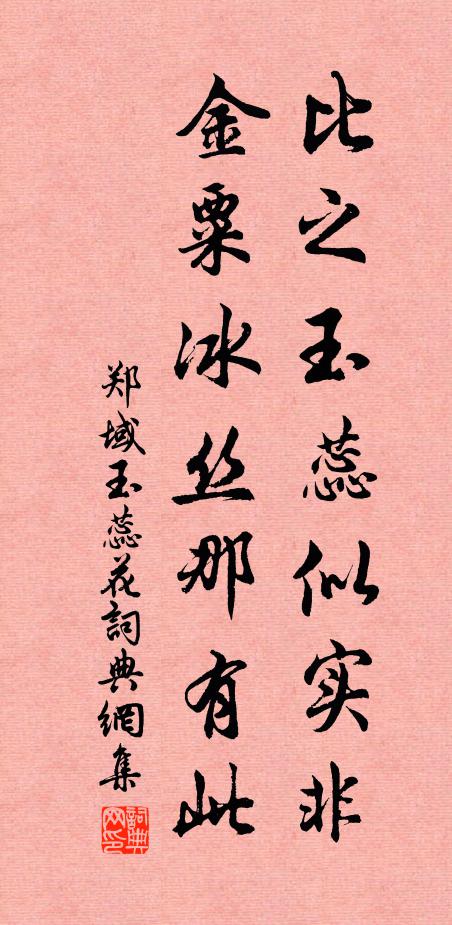 比之玉蕊似实非
金粟冰丝那有此
郑域玉蕊花詞典網集
詞典网印